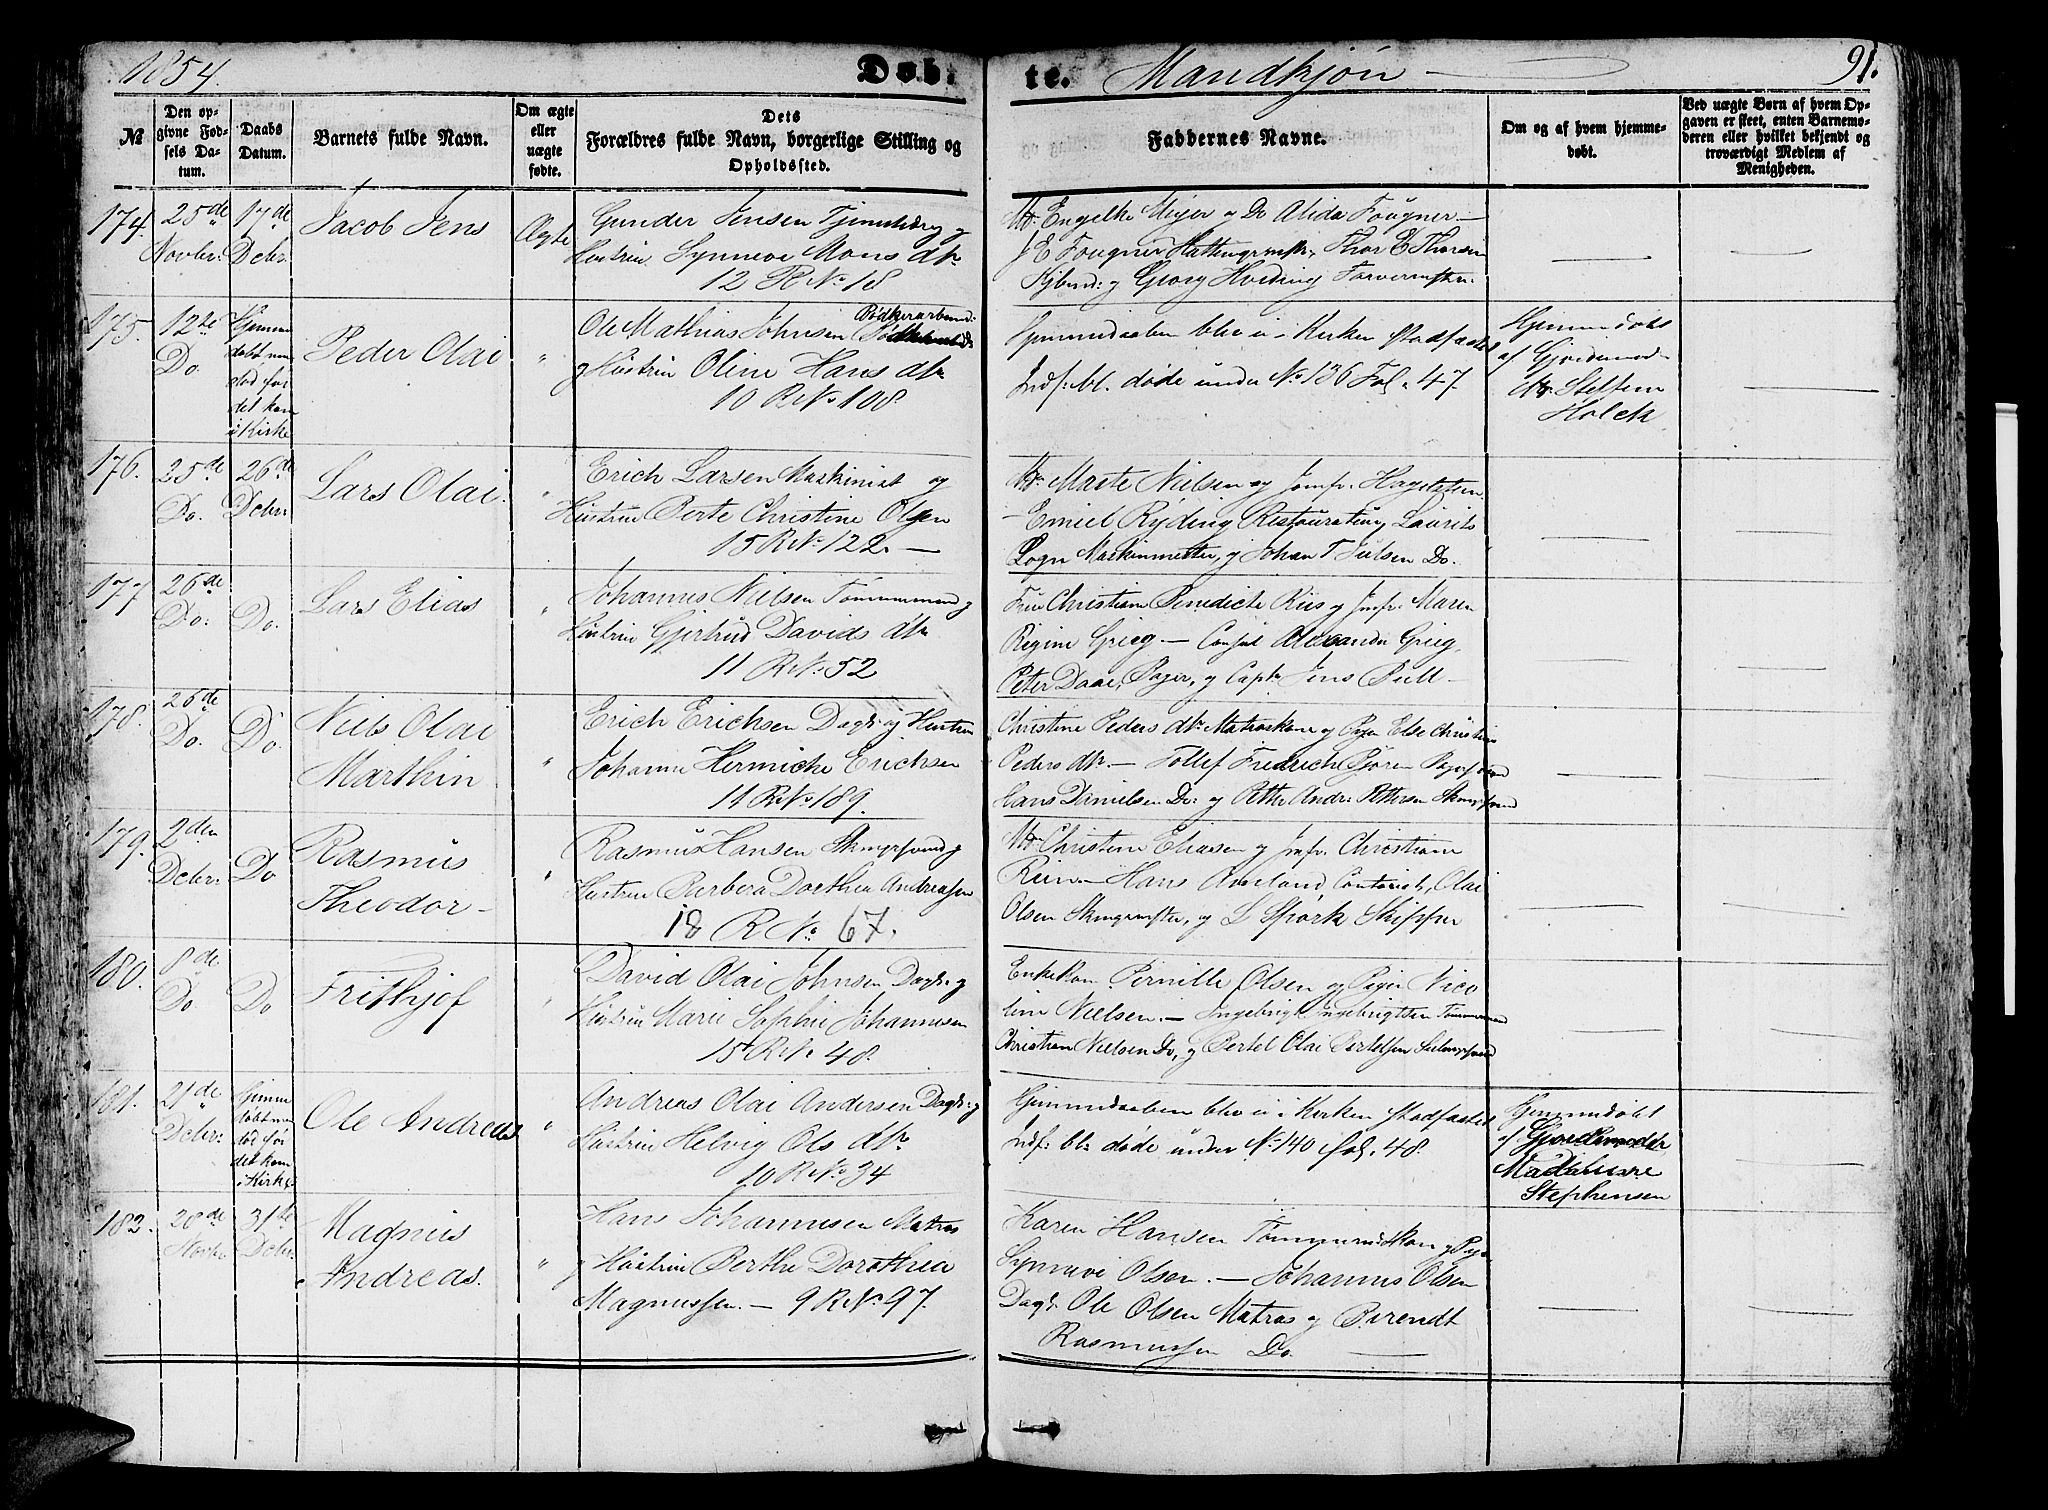 1854. Døb- te. Mandkjøn 91.
№
Den op-
givne Fød-
sels Da-
tum.
Daabs
Datum.
Barnets fulde Navn.
Om ægte
eller
uægte
fødte.
Dets
Forældres fulde Navn, borgerlige Stilling og
Opholdssted.
Faddernes Navne.
Om og af hvem hjemme-
døbt.
Ved uægte Børn af hvem Op-
gaven er skeet, enten Barnemo-
deren eller hvilket bekjendt og
troværdigt Medlem af
Menigheden.
174. 25de 17de Jacob Jens Ægte
Novbr: Debr.
Gunder Jensen
Hustrue Synneve Mons dtr
12 R No 18
Md. Engelke Meyer og Do Alida Fougner —
J E Fougner Thor E Thorsen
og Georg Hveding Farvermester.
175. 12te Hjemme
Do. døbt men
død før
det kom
i Kirke
Peder Olai "
Ole Mathias Johnsen Bødkerarbeid:
og Hustrue Oline Hans dtr
10 R No 108.
Hjemmedaaben blev ei i Kirken stadfæstet
Indf: bl. døde under No 136 Fol. 47.
Hjemmedøbt
af Gjordemod-
Steffen
Holck
176. 25de 26de Lars Olai. "
Do. Debr.
Erich Larsen Maskinist og
Hustrue Berte Christine Olsen
15 R No 122. —
Md. Marte Nielsen og Jomfr. Hagelsteen
— Emiel Ryding Restaurateur, Laurits
Sogn Maskinmester, og Johan T Julsen Do.
177. 26de Lars Elias "
Do. Do.
Johannes Nielsen Tømmermand og
Hustrue Gjertrud Davids dtr
11 R No 52
Frue Christiane Benedicte Riis og Jmfr. Maren
Regine Grieg — Consul Alexander Grieg,
Peter Daae, og Capt. Jens Bull —
178. 26de Niels Olai
Do. Do Marthin "
Erich Erichsen Dagk: og Hustrue
Johanne Hermiche Erichsen
11 R No 189.
Christine Peders dtr. Matroskone og Pigen Else Christine
Peders dtr. — Tollef Fredrich Bjøren
Hans Danielsen Do: og Petter Andr: Pettersen
179. 2den Rasmus
Debr: Do Theodor — "
Rasmus Hansen og
Hustrue Barbera Dorthea Andreasen
18 R No 67.
Md. Christine Eliasen og Jmfr. Christiane
— Hans Ameland, Contorist, Olai
Olsen og L Spørk Skipper
180. 8de Frithjof
Do Do "
David Olai Johnsen Dagk: og
Hustrue Marie Sophie Johannesen
15 R No 48.
Enkekone Pernille Olsen og Pigen Nico
line Nielsen. — Ingebrigt Ingebrigtsen Tømmermand
Christian Nielsen Do, og Bertel Olai Bertelsen
181. 21de Hjemme
Debr: døbt men
død før
det kom
i Kirke
Ole Andreas "
Andreas Olai Andersen Dagk: og
Hustrue Helvig Ols dtr
10 R No 34
Hjemmedaaben blev ei i Kirken stadfæstet
Indf: bl: døde under No 140 fol. 48.
Hjemmedøbt
af Gjordemoder
Stephensen
182. 28de 31te Magnus
Novbr Debr. Andreas. "
Hans Johannesen Matros
og Hustrue Berthe Dorothea
Magnussen. — 9 R No 97.
Karen Hansen Tømmermdskone og Pige
Synneve Olsen. — Johannes Olsen
Dagk. Ole Olsen Matros og Berendt
Rasmussen Do. —